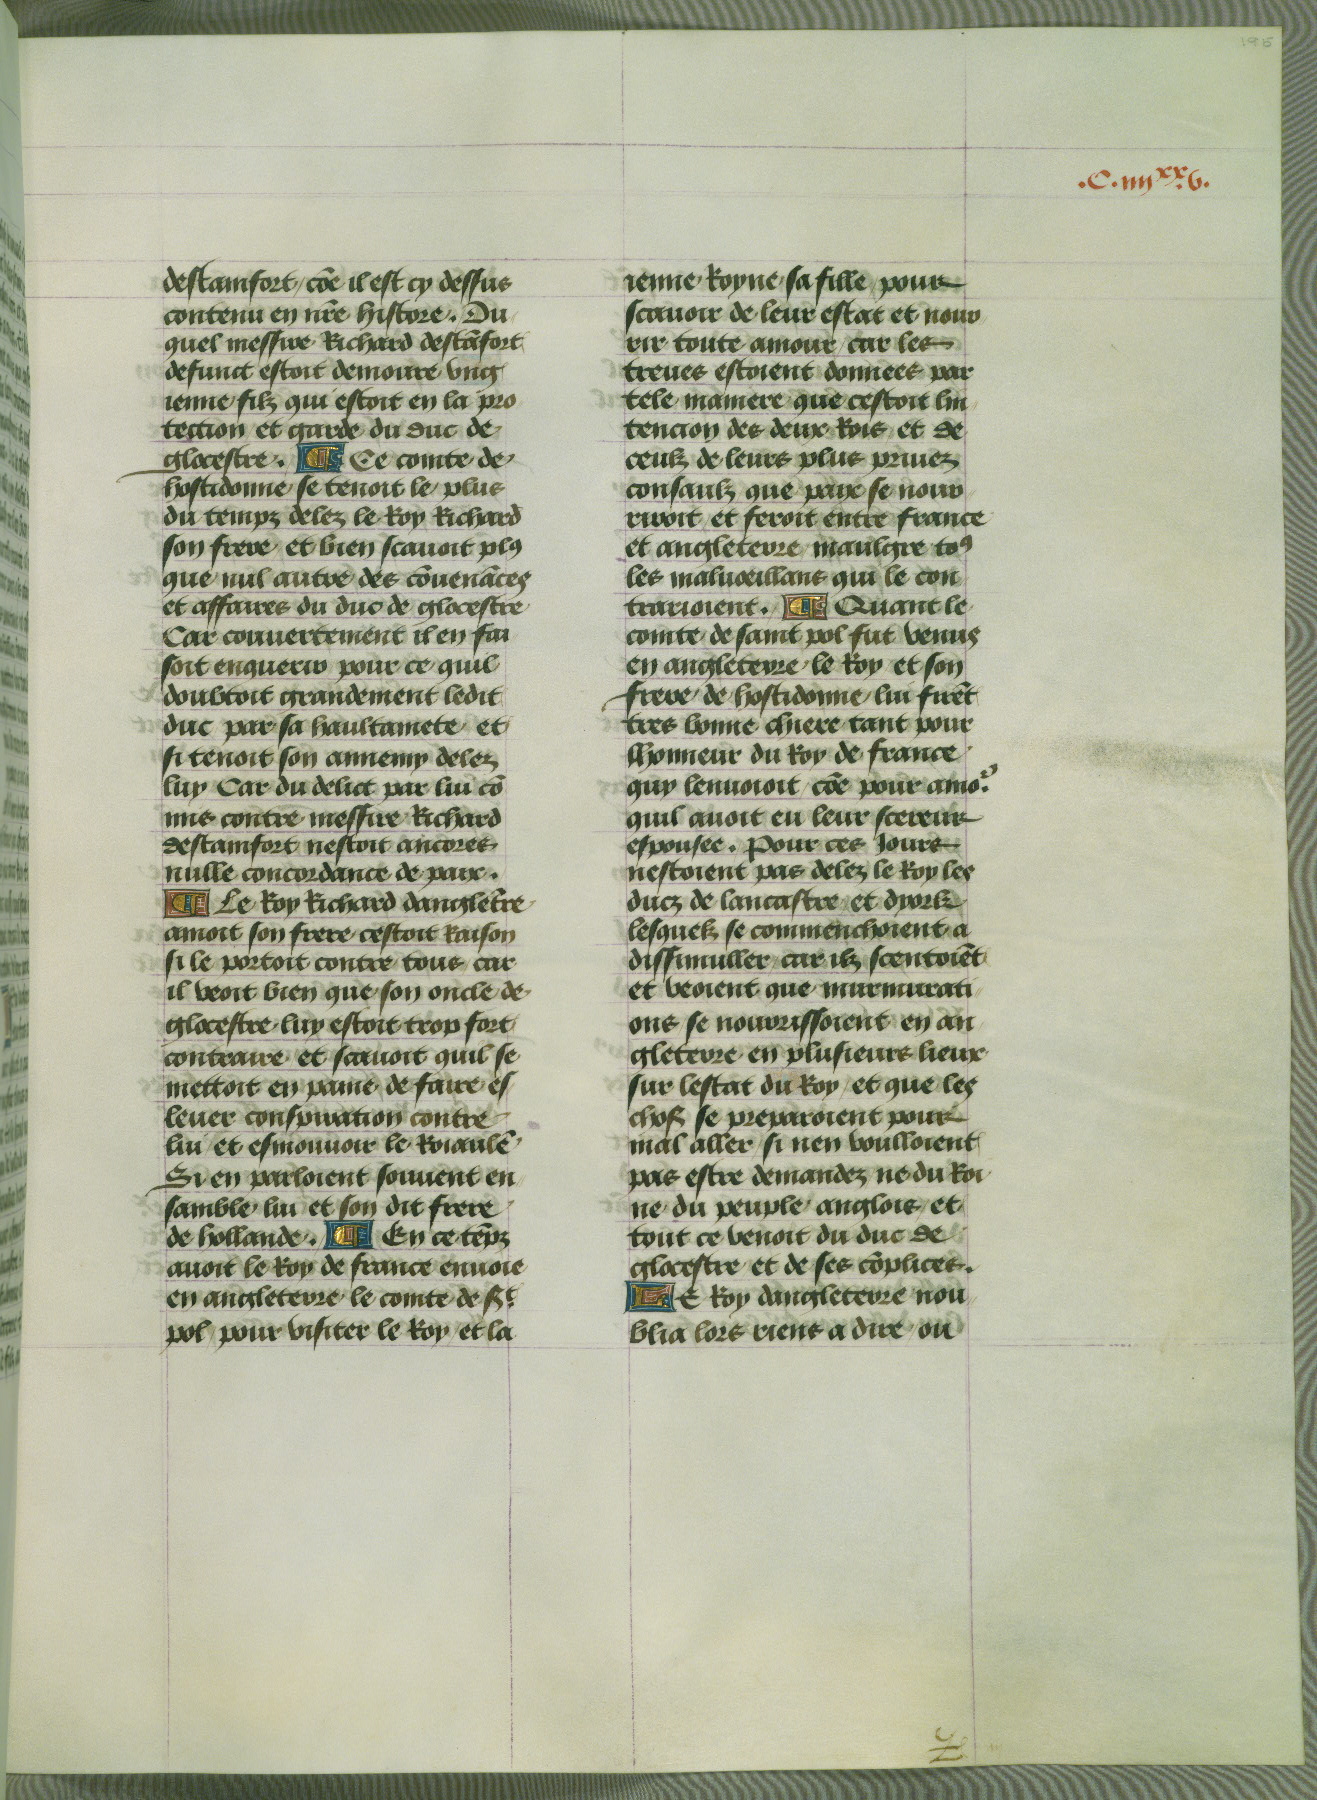 195
.C.iiijxx.v.
destamfort, cōe il est cy dessus
contenu en nr̄e histore. Du
quel messire Richard destāfort
defunct estoit demoure vng
ienne filz qui estoit en la pro
tection et garde du duc de
glocestre. ¶ Ce comte de
hostidonne se tenoit le plus
du tempz delez le Roy Richard
son frere et bien scauoit plꝰ
que nul autre des cōuenāces
et affaires du duc de glocestre
Car couuertement il en fai
soit enquerir pour ce quil
doubtoit grandement ledit
duc par sa haultainete et
si tenoit son annemy delez
luy Car du delict par lui cō
mis contre messire Richard
destamfort nestoit ancores
nulle concordance de paix.
¶ Le Roy Richard dangletr̄e
amoit son frere cestoit Raison
si le portoit contre tous car
il veoit bien que son oncle de
glocestre luy estoit trop fort
contraire et scauoit quil se
mettoit en paine de faire es
leuer conspiration contre
lui et esmouuoir le Roiaulē
Si en parloient souuent en
samble lui et son dit frere
de hollande. ¶ En ce tēpz
auoit le Roy de france enuoie
en angleterre le comte de st
pol pour visiter le Roy et la
ienne Royne sa fille pour
scauoir de leur estat et nour
rir toute amour car les
treues estoient donnees par
tele maniere que cestoit lin
tencion des deux Rois et de
ceulz de leurs plus priuez
consaulz que paix se nour
riroit et feroit entre france
et angleterre maulgre toꝰ
les malueillans qui le con
trarioient. ¶ Quant le
comte de saint pol fut venus
en angleterre le Roy et son
frere de hostidonne lui firēt
tres bonne chiere tant pour
lhonneur du Roy de france
quy lenuoioit cōe pour amor
quil auoit eu leur scereur
espousee. Pour ces Jours
nestoient pas delez le Roy les
ducz de lancastre et dyork
lesquelz se commenchoient a
dissimuller car ilz scentoiēt
et veoient que murmurati
ons se nourrissoient en an
gleterre en plusieurs lieux
sur lestat du Roy et que les
choses se preparoient pour
mal aller si nen voulloient
pas estre demandez ne du Roi
ne du peuple anglois et
tout ce venoit du duc de
glocestre et de ses cōplices.
LE Roy dangleterre nou
blia lors riens a dire ou